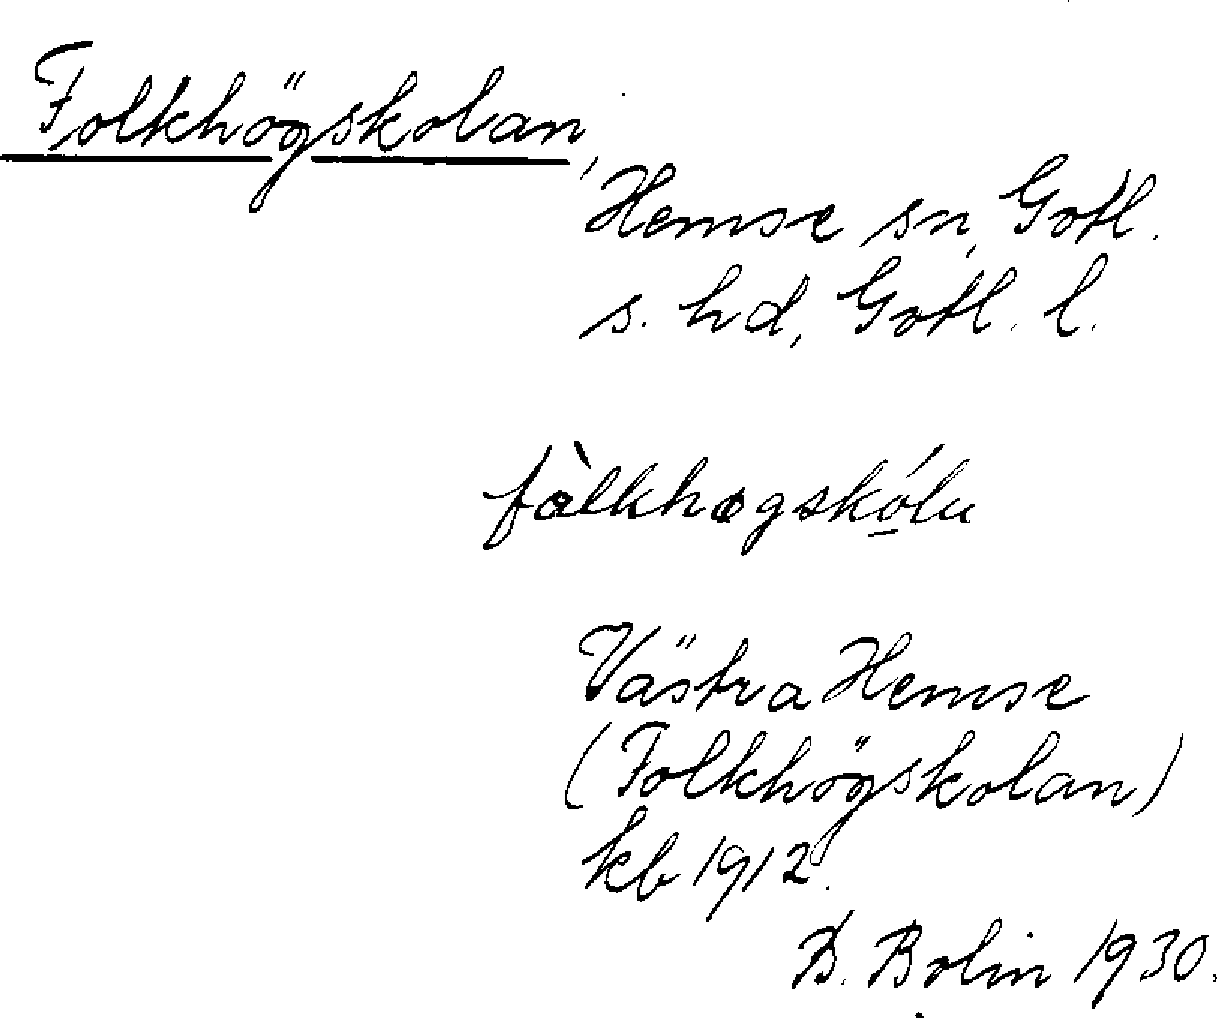 Folkhögskolan,
Hemse sn, Gotl.
s. hd, Gotl. l.
fòlkhøgskó̲lu
Västra Hemse
(Folkhögskolan)
kb 1912.
Bolin 1930.